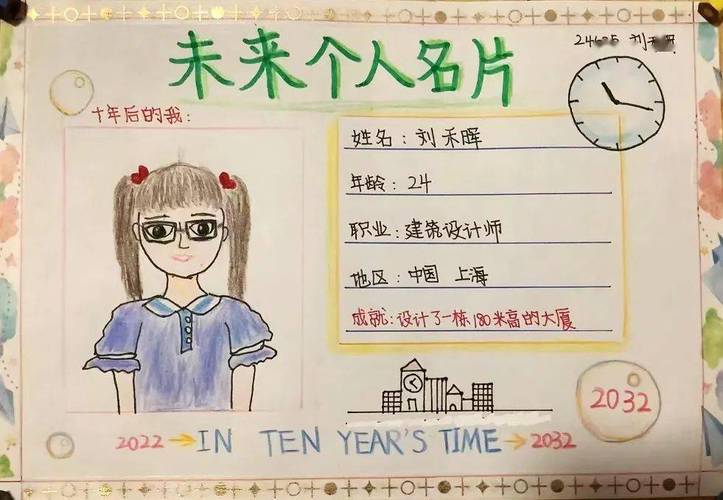 未来个人名片
十年后的我:
姓名:刘禾晖
年龄:24
职业:建筑设计师
地区:中国 上海
成就:设计了一栋180米高的大厦
2032
2022→IN TEN YEAR'S TIME→2032